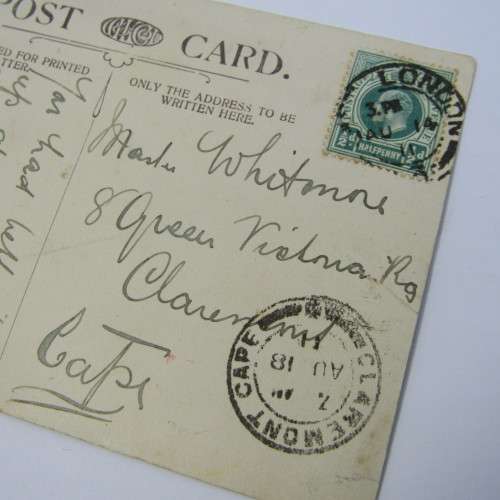 POST CARD.
ED FOR PRINTED
TTER.
ONLY THE ADDRESS TO BE
WRITTEN HERE.
You had
Master Whitmore
8 Queen Victoria Rd
Claremont
Cape
HALFPENNY
½d ½d
LONDON
3. PM
AU
CLAREMONT CAPE
AU 18
11